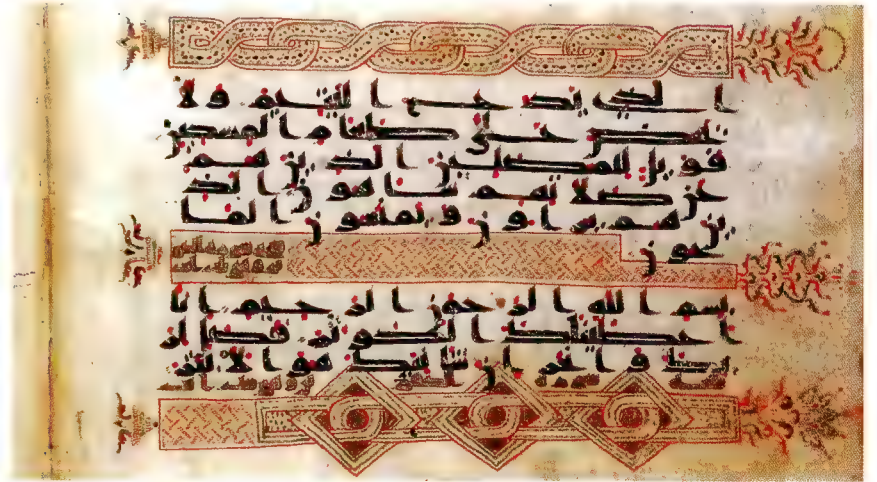 الذي يدع اليتيم ولا
يحض على طعام المسكين
فويل للمصلين الذين هم
عن صلاتهم ساهون الذ
ين هم يراون ويمنعون الما
عون
بسم الله الرحمن الرحيم انا
اعطينك الكوثر فصل لر
بك وانحر ان شانيك هو الابتر